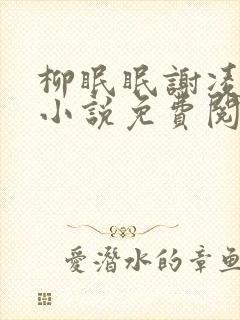 柳眠眠謝凌
小說免費閱
愛潛水的章魚